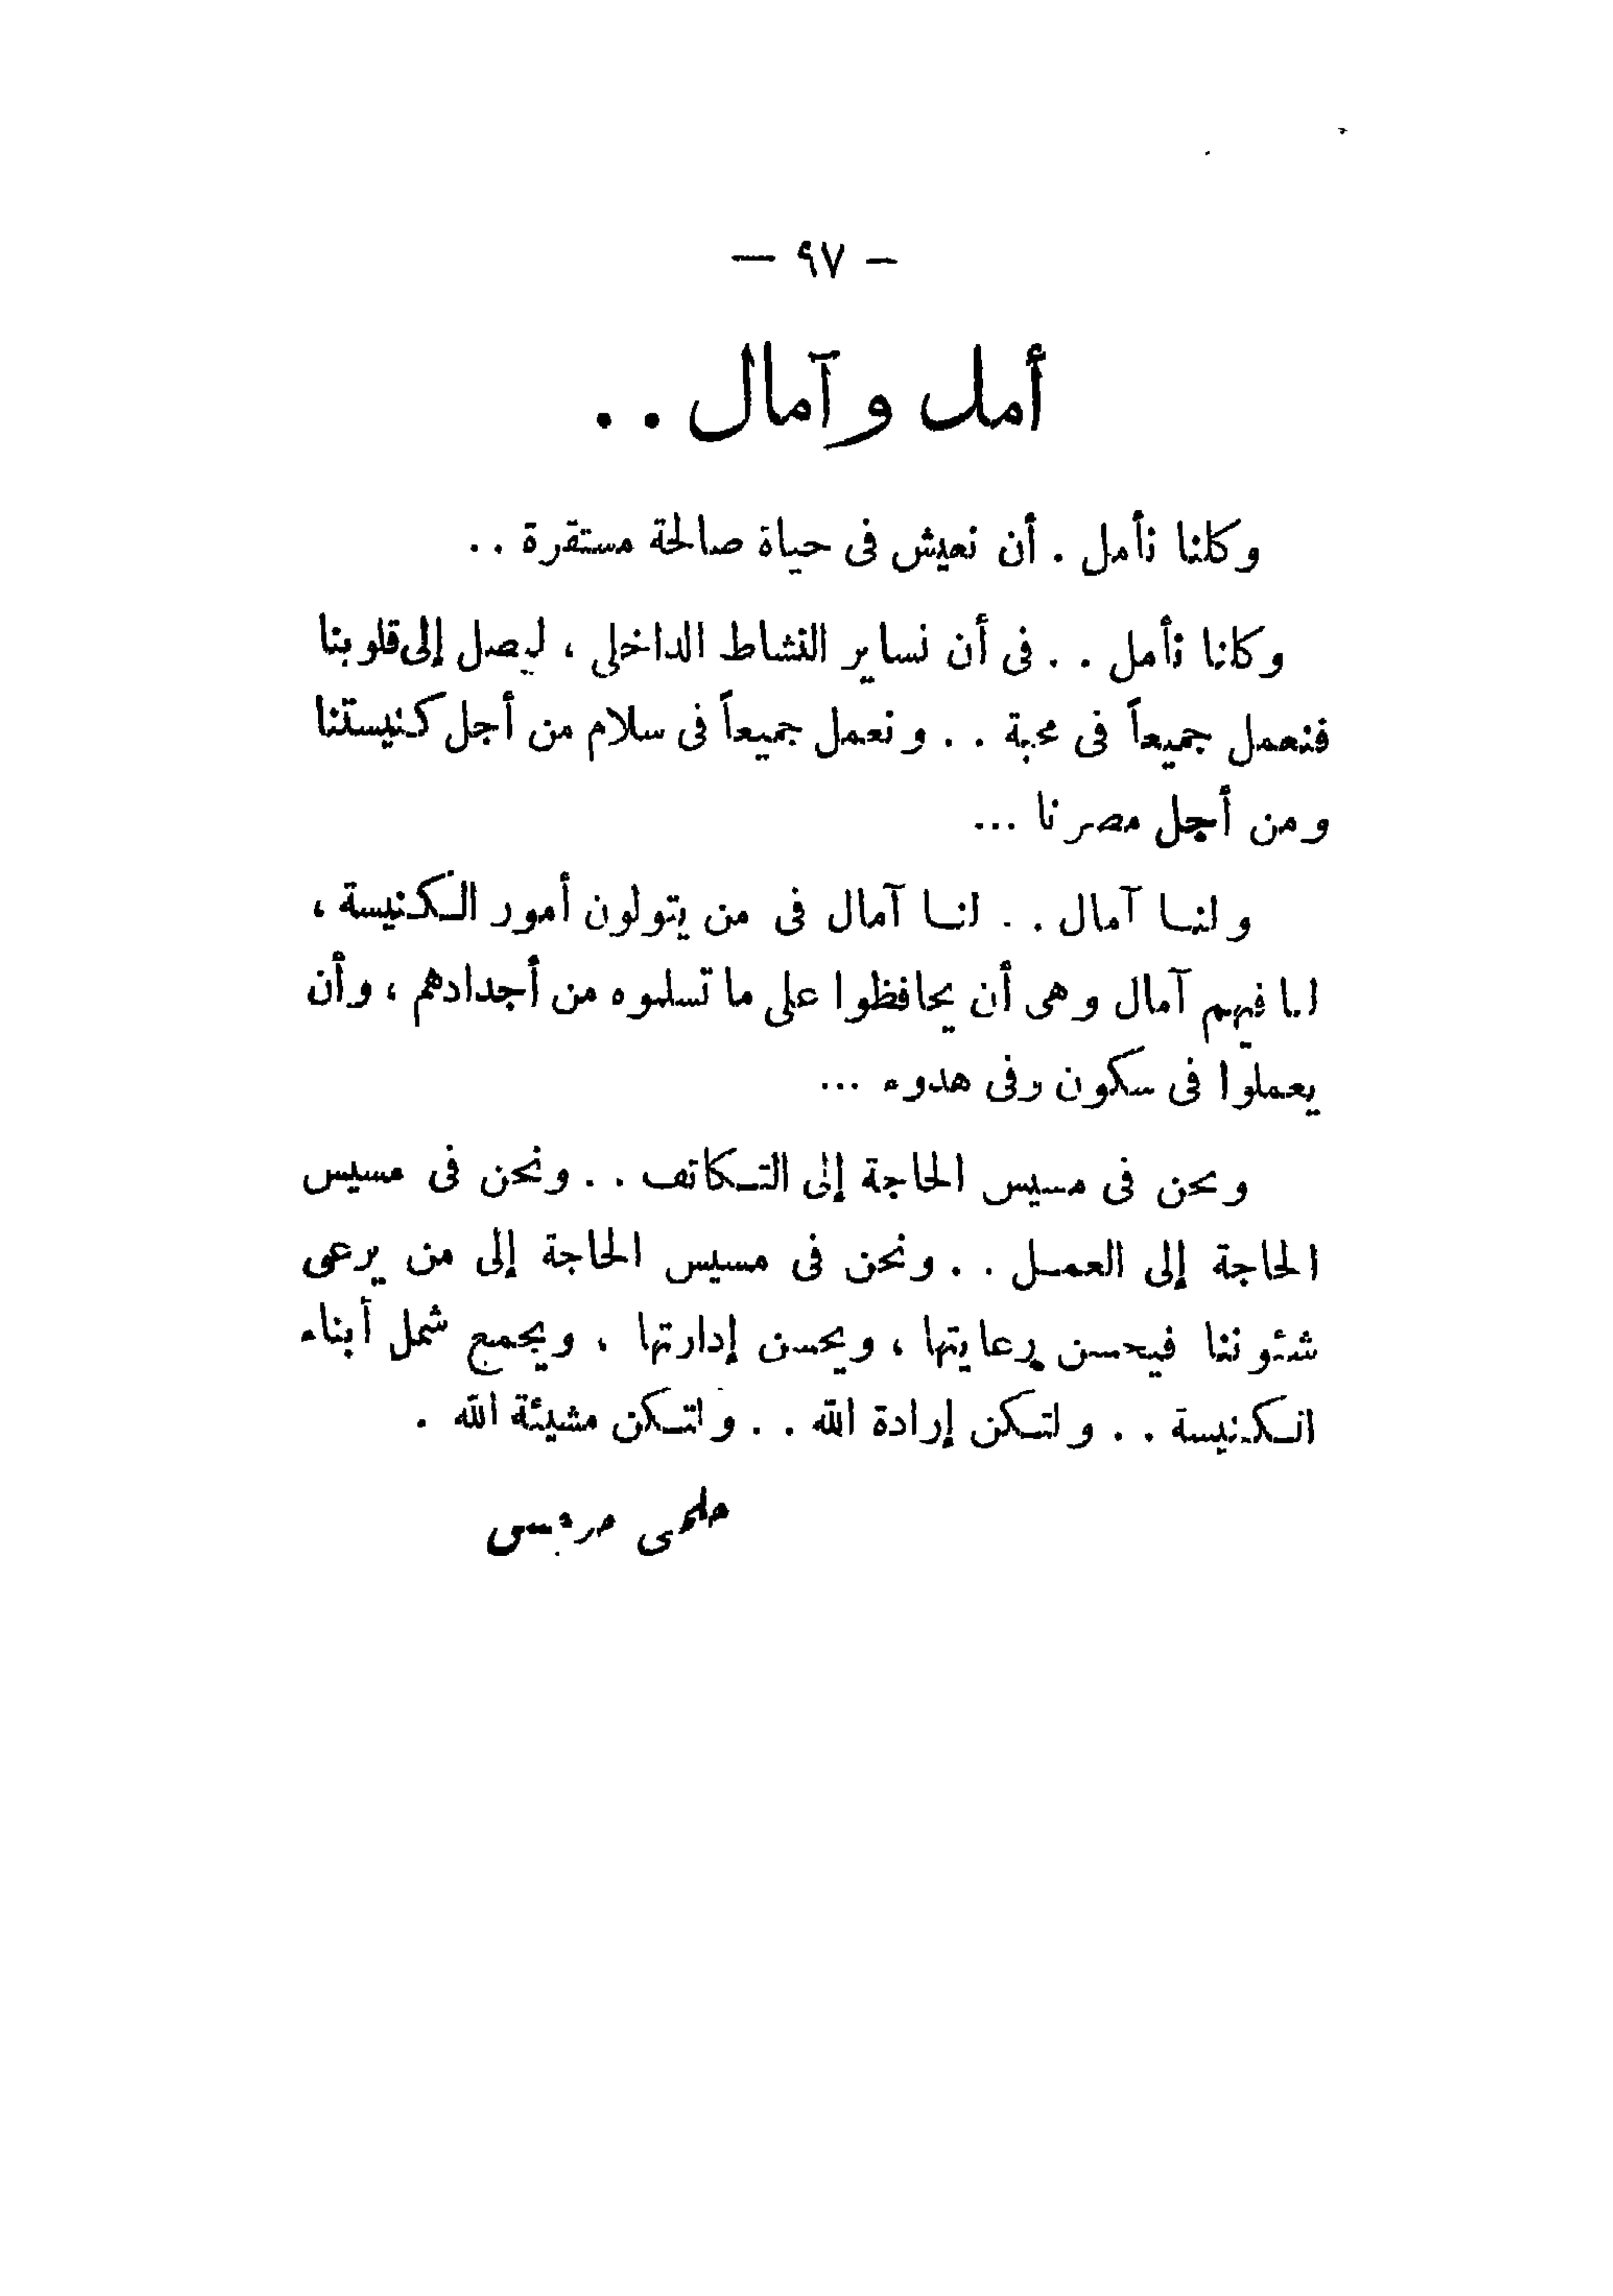 — ٩٧ —
أمل وآمال . .
وكلنا نأمل . أن نعيش فى حياة صالحة مستقرة . .
وكلنا نأمل . . فى أن نساير النشاط الداخلى ، ليصل إلى قلوبنا
فنعمل جميعاً فى محبة . . ونعمل جميعاً فى سلام من أجل كنيستنا
ومن أجل مصرنا ...
ولنا آمال . . لنا آمال فى من يتولون أمور الكنيسة ،
لنا فيهم آمال وهى أن يحافظوا على ما تسلموه من أجدادهم ، وأن
يعملوا فى سكون وفى هدوء ...
ونحن فى مسيس الحاجة إلى التكاتف . . ونحن فى مسيس
الحاجة إلى العمل . . ونحن فى مسيس الحاجة إلى من يرعى
شئوننا فيحسن رعايتها ، ويحسن إدارتها ، ويجمع شمل أبناء
الكنيسة . . ولتكن إرادة الله . . ولتكن مشيئة الله .
حلمى مرقس